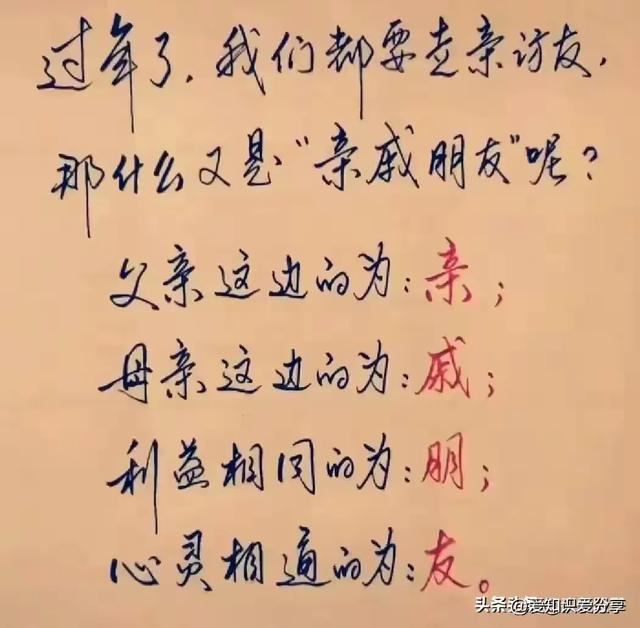 过年了，我们都要走亲访友，
那什么又是“亲戚朋友”呢？
父亲这边的为：亲；
母亲这边的为：戚；
利益相同的为：朋；
心灵相通的为：友。
头条 @爱知识爱分享